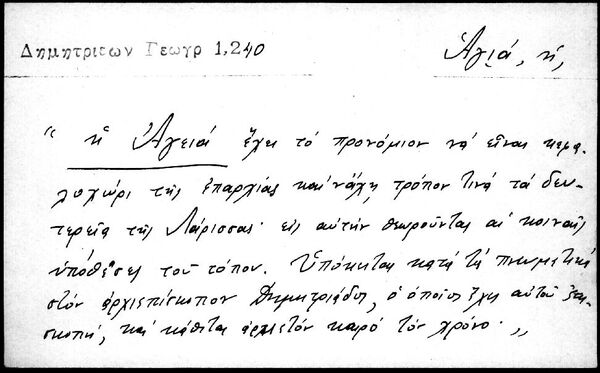 Δημητριεων Γεωγρ 1,240
Ἁγιά, ἡ,
“ ἡ Ἁγειά ἔχει τό προνόμιον νά εἶναι κεφα
λοχώρι τῆς ἐπαρχίας καί νάχῃ τρόπον τινά τά δευ-
τερεῖα τῆς Λάρισσας· εἰς αὐτήν θεωροῦνται αἱ κοιναῖς
ὑπόθεσες τοῦ τόπου. Ὑπόκειται κατά τά πνευματικά
στόν ἀρχιεπίσκοπον Δημητριάδος, ὁ ὁποῖος ἔχει αὐτοῦ ἐπι-
σκοπή, καί κάθεται ἀρκετόν καιρό τόν χρόνο. „